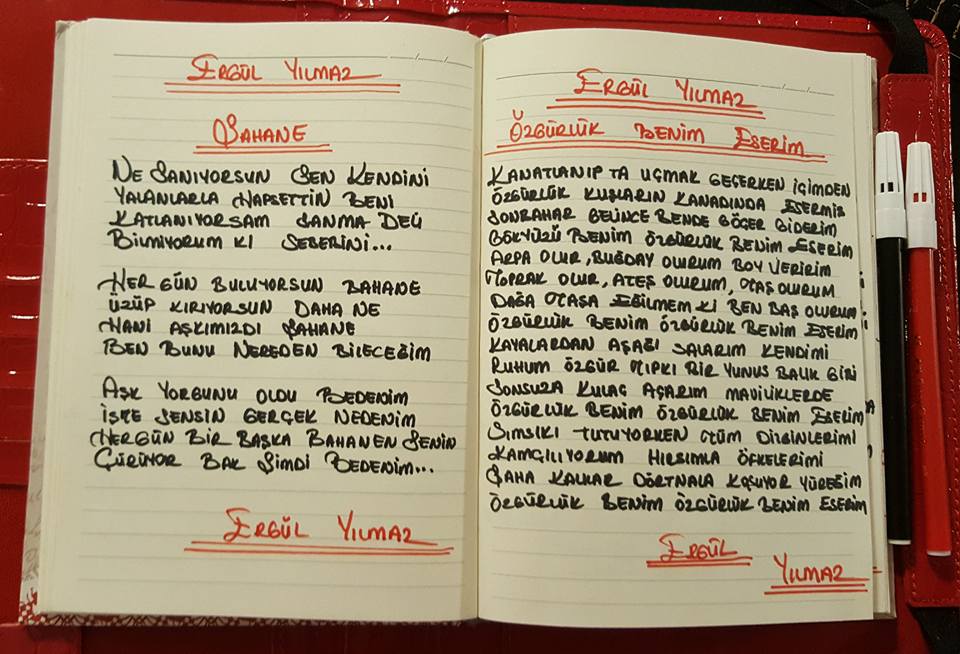 ERGÜL YILMAZ
ŞAHANE
NE SANIYORSUN SEN KENDİNİ
YALANLARLA HAPSETTİN BENİ
KATLANIYORSAM SANMA DELİ
BİLMİYORUM Kİ SEBEBİNİ...
HER GÜN BULUYORSUN BAHANE
ÜZÜP KIRIYORSUN DAHA NE
HANİ AŞKIMIZDI ŞAHANE
BEN BUNU NEREDEN BİLECEĞİM
AŞK YORGUNU OLDU BEDENİM
İŞTE SENSİN GERÇEK NEDENİM
HERGÜN BİR BAŞKA BAHANEN SENİN
ÇÜRÜYOR BAK ŞİMDİ BEDENİM...
ERGÜL YILMAZ
ERGÜL YILMAZ
ÖZGÜRLÜK BENİM ESERİM
KANATLANIP TA UÇMAK GEÇERKEN İÇİMDEN
ÖZGÜRLÜK KUŞLARIN KANADINDA ESERMİŞ
SONBAHAR GELİNCE BENDE GÖÇER GİDERİM
GÖKYÜZÜ BENİM ÖZGÜRLÜK BENİM ESERİM
ARPA OLUR, BUĞDAY OLURUM BOY VERİRİM
TOPRAK OLUR, ATEŞ OLURUM, OTAŞ OLURUM
DAĞA TAŞA EĞİLMEM Kİ BEN BAŞ OLURUM
ÖZGÜRLÜK BENİM ÖZGÜRLÜK BENİM ESERİM
KAYALARDAN AŞAĞI SALARIM KENDİMİ
RUHUM ÖZGÜR TIPKI BİR YUNUS BALIK GİBİ
SONSUZA KULAÇ AÇARIM MAVİLİKLERDE
ÖZGÜRLÜK BENİM ÖZGÜRLÜK BENİM ESERİM
SIMSIKI TUTUYORKEN TÜM DİZGİNLERİMİ
KAMÇILIYORUM HIRSIMLA ÖFKELERİMİ
ŞAHA KALKAR DÖRTNALA KOŞUYOR YÜREĞİM
ÖZGÜRLÜK BENİM ÖZGÜRLÜK BENİM ESERİM
ERGÜL
YILMAZ